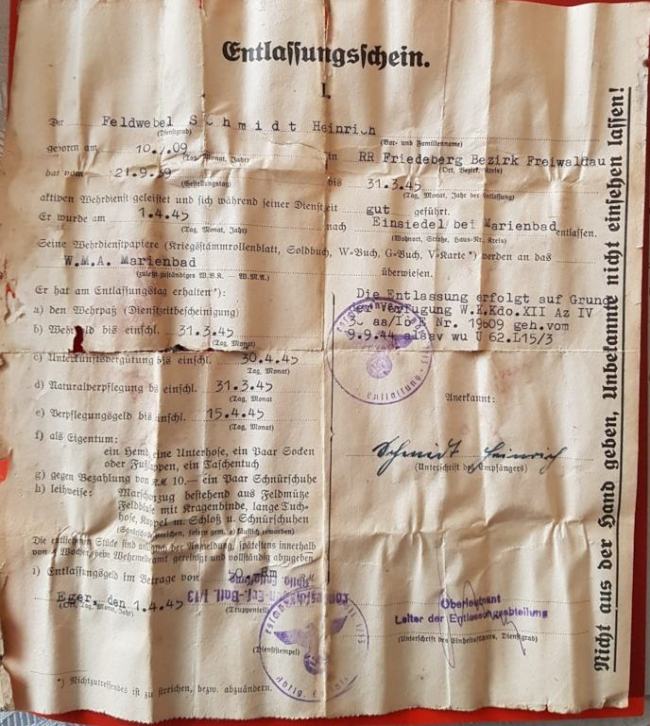 Entlassungsschein.
I.
Der Feldwebel Schmidt Heinrich
(Dienstgrad) (Vor- und Familienname)
geboren am 10. .09 in RR Friedeberg Bezirk Freiwaldau
(Tag, Monat, Jahr) (Ort, Bezirk, Kreis)
hat vom 21.9.39 bis 31.3.45
(Gestellungstag) (Tag, Monat, Jahr der Entlassung)
aktiven Wehrdienst geleistet und sich während seiner Dienstzeit gut geführt.
Er wurde am 1.4.45 nach Einsiedel bei Marienbad entlassen.
(Tag, Monat, Jahr) (Wohnort, Straße, Haus-Nr. Kreis)
Seine Wehrdienstpapiere (Kriegsstammrollenblatt, Soldbuch, W-Buch, G-Buch, V-Karte*) werden an das
W.M.A. Marienbad überwiesen.
(zuletzt zuständiges W.B.K. — W.M.A.)
Er hat am Entlassungstag erhalten*):
a) den Wehrpaß (Dienstzeitbescheinigung)
b) Wehrsold bis einschl. 31.3.45
(Tag, Monat)
c) Unterkunftsvergütung bis einschl. 30.4.45
(Tag, Monat)
d) Naturalverpflegung bis einschl. 31.3.45
(Tag, Monat)
e) Verpflegungsgeld bis einschl. 15.4.45
(Tag, Monat)
f) als Eigentum:
ein Hemd, eine Unterhose, ein Paar Socken
oder Fußlappen, ein Taschentuch
g) gegen Bezahlung von RM 10.— ein Paar Schnürschuhe
h) leihweise: Marschanzug bestehend aus Feldmütze
Feldbluse mit Kragenbinde, lange Tuch-
hose, Koppel m. Schloß u. Schnürschuhen
Die entliehenen Stücke sind bei der Anmeldung, spätestens innerhalb
von Wochen, dem Wehrmeldeamt gereinigt und vollständig abzugeben
i) Entlassungsgeld im Betrage von
Eger, den 1.4.45
(Ort, Tag, Monat, Jahr)
(Truppenteil)
(Dienststempel)
*) Nichtzutreffendes ist zu streichen, bezw. abzuändern.
Die Entlassung erfolgt auf Grund
der Verfügung W.K.Kdo.XIII Az IV
Nr. 19609 geh.vom
9.9.44
Anerkannt:
Schmidt Heinrich
(Unterschrift des Empfängers)
Oberleutnant
Leiter der Entlassungsabteilung
(Unterschrift des Einheitsführers, Dienstgrad)
Nicht aus der Hand geben, Unbekannte nicht einsehen lassen!